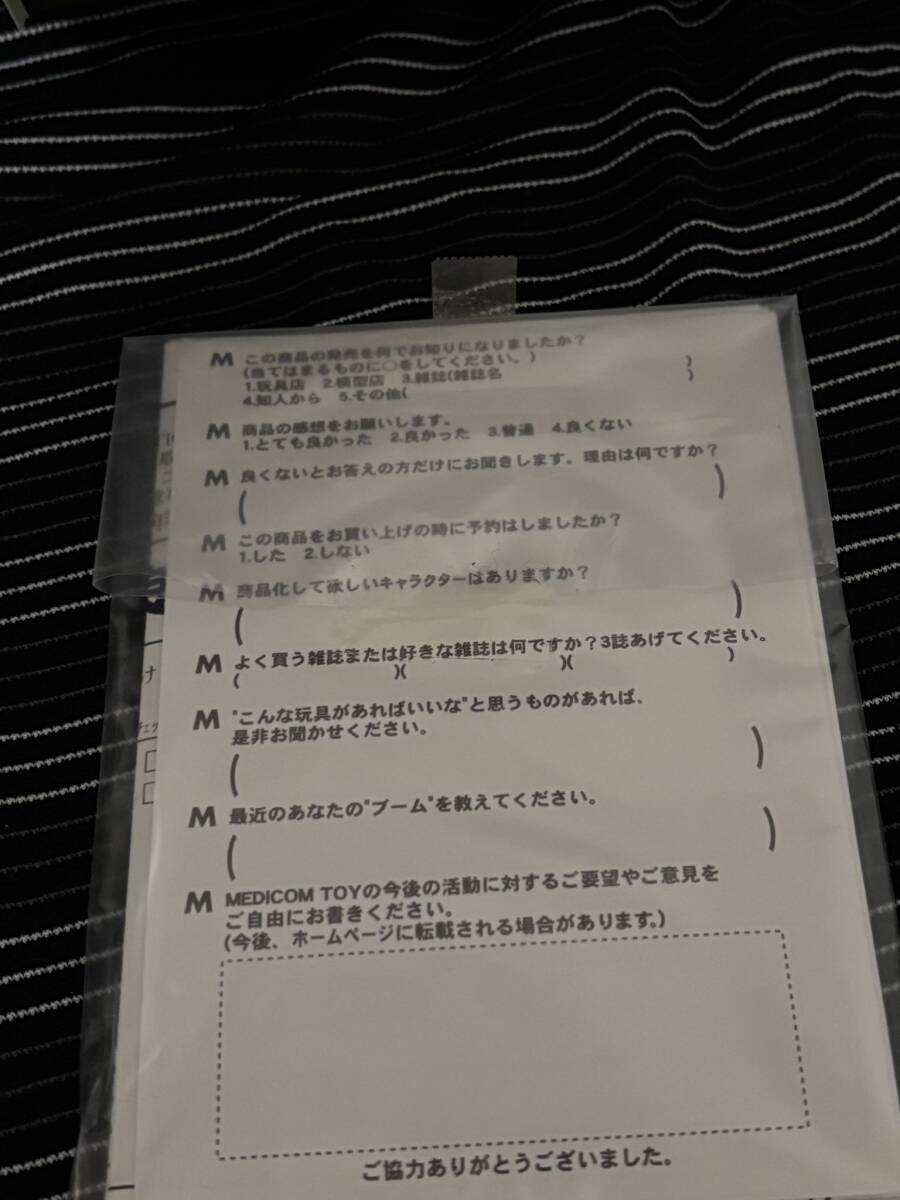 M この商品の発売を何でお知りになりましたか？
(当てはまるものに○をしてください。)
1.玩具店 2.模型店 3.雑誌(雑誌名 )
4.知人から 5.その他( )
M 商品の感想をお願いします。
1.とても良かった 2.良かった 3.普通 4.良くない
M 良くないとお答えの方だけにお聞きします。理由は何ですか？
( )
M この商品をお買い上げの時に予約はしましたか？
1.した 2.しない
M 商品化して欲しいキャラクターはありますか？
( )
M よく買う雑誌または好きな雑誌は何ですか？3誌あげてください。
( )( )( )
M "こんな玩具があればいいな"と思うものがあれば、
是非お聞かせください。
( )
M 最近のあなたの"ブーム"を教えてください。
( )
M MEDICOM TOYの今後の活動に対するご要望やご意見を
ご自由にお書きください。
(今後、ホームページに転載される場合があります。)
ご協力ありがとうございました。